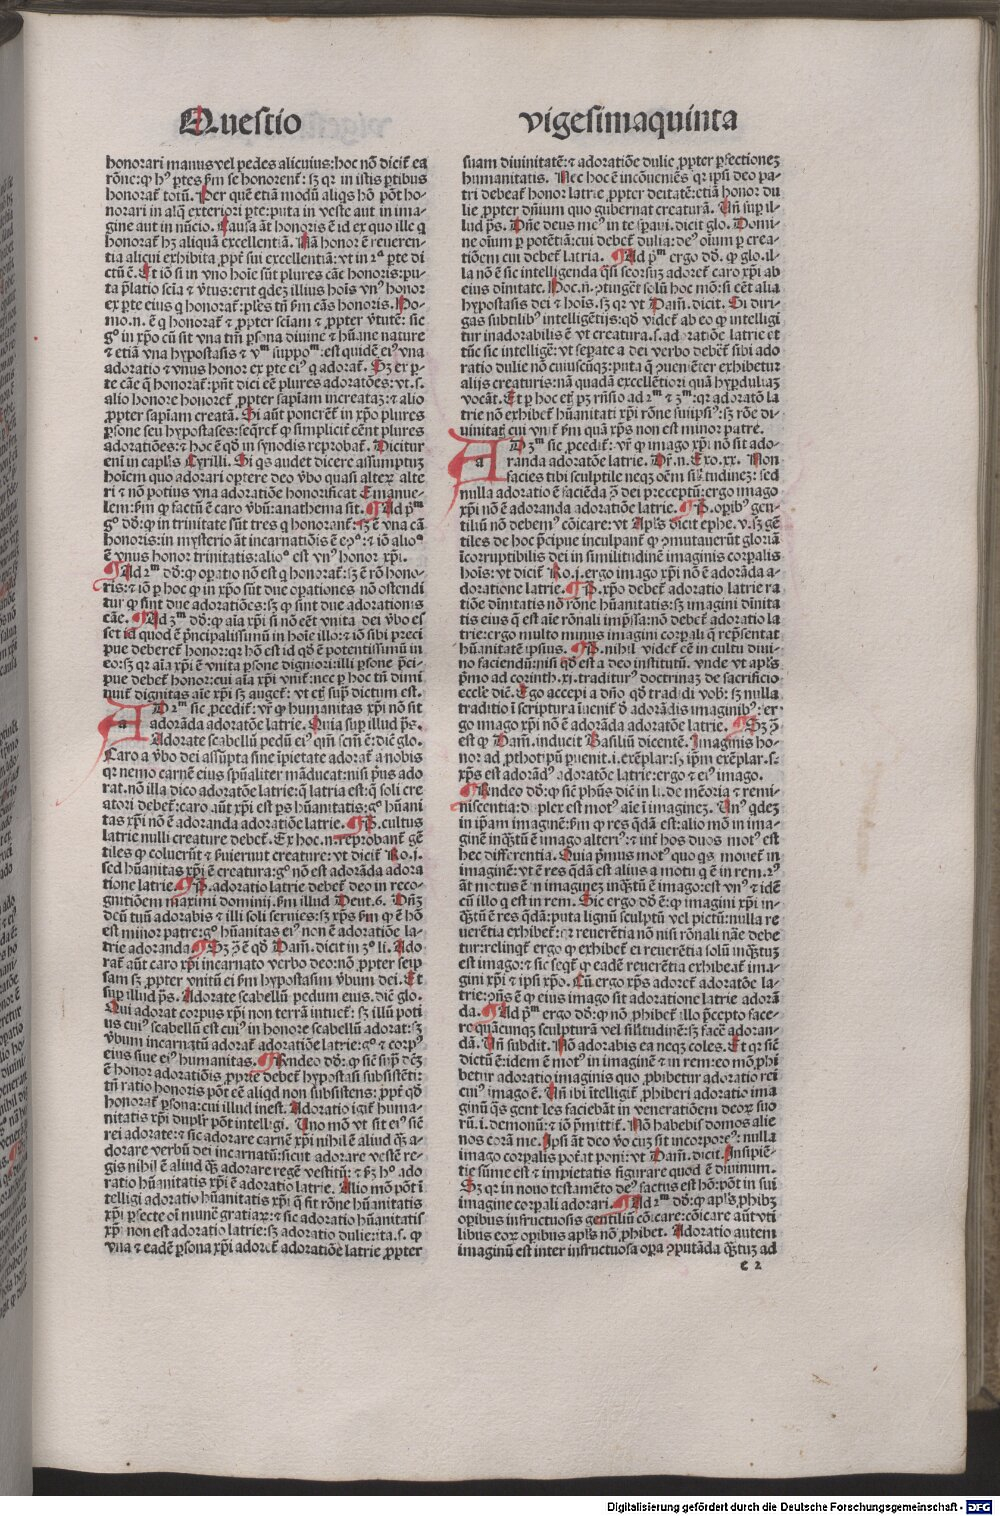 Questio
vigesimaquinta
honorari manus vel pedes alicuius: hoc nõ dicit̃ ea
rõne: ꝙ hꝰ ꝑtes ẜm se honorent̃: sꝫ qꝛ in istis ꝑtibus
honorat̃ totũ. Per quẽ etiã modũ aliqs hõ põt ho-
norari in alq̃ exteriori ꝑte: puta in veste aut in ima-
gine aut in nũcio. Causa ãt honoris ẽ id ex quo ille q
honorat̃ hꝫ aliquã excellentiã. Nã honor ẽ reueren-
tia alicui exhibita ꝓpt̃ sui excellentiã: vt in 2ª ꝑte di
ctũ ẽ. Et iõ si in vno hoĩe sũt plures cãe honoris: pu-
ta p̃latio scĩa ⁊ v̓tus: erit qdeꝫ illius hoĩs vnꝰ honor
ex ꝑte eius q honorat̃: ples tñ ẜm cãas honoris. Ho-
mo .n. ẽ q honorat̃ ⁊ ꝓpter sciam ⁊ ꝓpter v̓tutẽ: sic
gº in xp̃o cũ sit vna tm̃ ꝑsona diuine ⁊ hũane nature
⁊ etiã vna hypostasis ⁊ vᵐ suppoᵐ: est quidẽ eiꝰ vna
adoratio ⁊ vnus honor ex ꝑte eiꝰ q adorat̃. Sꝫ ex ꝑ-
te cãe q honorat̃: pñt dici eẽ plures adoratões: vt .s.
alio honore honoret̃ ꝓpter sapĩam increataꝫ: ⁊ alio
ꝓpter sapĩam creatã. Si aũt poneret̃ in xp̃o plures
ꝑsone seu hypostases: seq̃ret̃ ꝙ simplicit̃ cẽnt plures
adoratiões: ⁊ hoc ẽ qd̃ in synodis reprobat̃. Dicitur
eni in caplis Cyrilli. Si qs audet dicere assumptuꝫ
hoĩem quo adorari optere deo v̓bo quasi alteꝝ alte
ri ⁊ nõ potius vna adoratiõe honorificat Emanue-
lem: ẜm ꝙ factũ ẽ caro v̓bũ: anathema sit. Ad p̃ᵐ
gº dõ: ꝙ in trinitate sũt tres q honorant̃: sꝫ ẽ vna cã
honoris: in mysterio ãt incarnatiõis ẽ eꝯº: ⁊ iõ alioº
ẽ vnus honor trinitatis: alioº est vnꝰ honor xp̃i.
Ad 2ᵐ dõ: ꝙ oꝑatio nõ est q honorat̃: sꝫ ẽ rõ hono-
ris: ⁊ iõ ꝑ hoc ꝙ in xp̃o sũt due oꝑationes nõ ostendi
tur ꝙ sint due adoratiões: sꝫ ꝙ sint due adorationis
cãe. Ad 3ᵐ dõ: ꝙ aĩa xp̃i si nõ eẽt vnita dei v̓bo es
set id quod ẽ p̃ncipalissimũ in hoĩe illo: ⁊ iõ sibi preci
pue deberet̃ honor: qꝛ hõ est id qd̃ ẽ potentissimũ in
eo: sꝫ qꝛ aĩa xp̃i ẽ vnita ꝑsone digniori: illi ꝑsone p̃ci-
pue debet̃ honor: cui aĩa xp̃i vnit̃: nec ꝑ hoc tñ dimi
nuit̃ dignitas aĩe xp̃i sꝫ auget̃: vt etĩ sup̃ dictum est.
AD 2ᵐ sic ꝓcedit̃: vr̃ ꝙ humanitas xp̃i nõ sit
adorãda adoratõe latrie. Quia suꝑ illud p̃s.
Adorate scabellũ pedũ eiꝰ qm̃ scm̃ ẽ: dic̃ glo.
Caro a v̓bo dei assũpta sine ĩpietate adorat̃ a nobis
qꝛ nemo carnẽ eius sp̃ualiter mãducat: nisi p̃us ado
rat. nõ illa dico adoratõe latrie: q̃ latria est: q̃ soli cre
atori debet̃: caro aũt xp̃i est ps hũanitatis: gº hũani
tas xp̃i nõ ẽ adoranda adoratiõe latrie. P̃. cultus
latrie nulli creature debet̃. Ex hoc .n. reprobant̃ gẽ
tiles ꝙ coluerũt ⁊ ẜuierunt creature: vt dicit̃ Ro.j.
sed hũanitas xp̃i ẽ creatura: gº nõ est adorãda adora
tione latrie. P̃. adoratio latrie debet̃ deo in reco-
gnitiõem maximi dominij. ẜm illud Deut.6. Dñꝫ
deũ tuũ adorabis ⁊ illi soli seruies: sꝫ xp̃s ẜm ꝙ ẽ hõ
est minor patre: gº hũanitas eiꝰ non ẽ adoratiõe la-
trie adoranda. Sꝫ ꝯ̃ ẽ qd̃ Dam̃. dicit in 3º li. Ado
rat̃ aũt caro xp̃i incarnato verbo deo: nõ ꝓpter seip̃
sam sꝫ ꝓpter vnitũ ei ẜm hypostasim v̓bum dei. Et
suꝑ illud p̃s. Adorate scabellũ pedum eius. dic̃ glo.
Qui adorat corpus xp̃i non terrã intuet̃: sꝫ illũ poti
us cuiꝰ scabellũ est cuiꝰ in honore scabellũ adorat: sꝫ
v̓bum incarnatũ adorat̃ adoratiõe latrie: gº ⁊ corpꝰ
eius siue eiꝰ humanitas. Rñdeo dõ: ꝙ sic̃ sup̃ dc̃ꝫ
ẽ honor adoratiõis ꝓprie debet̃ hypostasi subsistẽti:
tñ ratio honoris põt eẽ aliqd non subsistens: ꝓpt̃ qd̃
honorat̃ ꝑsona: cui illud inest. Adoratio igit̃ huma-
nitatis xp̃i dupl̃r põt intelligi. Uno mõ vt sit eiꝰ sic̃
rei adorate: ⁊ sic adorare carnẽ xp̃i nihil ẽ aliud q̃ꝫ a-
dorare verbũ dei incarnatũ: sicut adorare vestẽ re-
gis nihil ẽ aliud q̃ꝫ adorare regẽ vestitũ: ⁊ ẜm hº ado
ratio hũanitatis xp̃i ẽ adoratio latrie. Alio mõ põt ĩ
telligi adoratio hũanitatis xp̃i q̃ fit rõne hũanitatis
xp̃i ꝑfecte oĩ munẽ gratiaꝝ: ⁊ sic adoratio hũanitatis
xp̃i non est adoratio latrie: sꝫ adoratio dulie: ita .s. ꝙ
vna ⁊ eadẽ ꝑsona xp̃i adoret̃ adoratiõe latrie ꝓpter
suam diuinitatẽ: ⁊ adoratiõe dulie ꝓpter ꝑfectioneꝫ
humanitatis. Nec hoc ẽ incõueniẽs qꝛ ip̃si deo pa-
tri debeat̃ honor latrie ꝓpter deitatẽ: etiã honor du
lie ꝓpter dñium quo gubernat creaturã. Uñ suꝑ il-
lud p̃s. Dñe deus meꝰ in te sꝑaui. dicit glo. Domi-
ne oĩum ꝑ potẽtiã: cui debet̃ dulia: deꝰ oĩum ꝑ crea-
tiõem cui debet̃ latria. Ad p̃ᵐ ergo dõ. ꝙ glo. il-
la nõ ẽ sic intelligenda q̃si seorsuꝫ adoret̃ caro xp̃i ab
eius dĩnitate. Hoc .n. ꝯtinget̃ solũ hoc mõ: si cẽt alia
hypostasis dei ⁊ hoĩs. sꝫ qꝛ vt Dam̃. dicit. Si diui-
gas subtilibꝰ intelligẽtijs: qd̃ videt̃ ab eo ꝙ intelligi
tur inadorabilis ẽ vt creatura .s. adoratiõe latrie et
tũc sic intelligẽ: vt seꝑate a dei verbo debet̃ sibi ado
ratio dulie nõ cuiuscũqꝫ: puta q̃ ꝯueniẽter exhibetur
alijs creaturis: nã quadã excellẽtiori quã hyꝑduliaꝫ
vocãt. Et ꝑ hoc et̃ pꝫ rñsio ad 2ᵐ ⁊ 3ᵐ: qꝛ adoratõ la
trie nõ exhibet̃ hũanitati xp̃i rõne suiipsiꝰ: sꝫ rõne di-
uinitat̃ cui vnit̃ ẜm quã xp̃s non est minor patre.
AD 3ᵐ sic ꝓcedit̃: vr̃ ꝙ imago xp̃i nõ sit ado-
randa adoratõe latrie. Dr̃ .n. Exo.xx. Non
facies tibi sculptile neqꝫ oẽm sił̃itudineꝫ: sed
nulla adoratio ẽ faciẽda ꝯ̃ dei preceptũ: ergo imago
xp̃i nõ ẽ adoranda adoratiõe latrie. P̃. oꝑibꝰ gen-
tiliũ nõ debemꝰ cõicare: vt Apl̃s dicit ephe.v. sꝫ gẽ
tiles de hoc p̃cipue inculpant̃ ꝙ ꝯmutauerũt gloriã
ĩcorruptibilis dei in similitudinẽ imaginis corꝑalis
hoĩs: vt dicit̃ Ro.j. ergo imago xp̃i nõ ẽ adorãda a-
doratione latrie. P̃. xp̃o debet̃ adoratio latrie ra
tiõe dĩnitatis nõ rõne hũanitatis: sꝫ imagini dĩnita
tis eius q̃ est aĩe rõnali imp̃ssa: nõ debet̃ adoratio la
trie: ergo multo minus imagini corꝑali q̃ rep̃sentat
hũanitatẽ ipsius. P̃. nihil videt̃ eẽ in cultu diui-
no faciendũ: nisi qd̃ est a deo institutũ. vnde vt apl̃s
p̃mo ad corinth.xj. traditurꝰ doctrinaꝫ de sacrificio
ecclẽ dic̃. Ego accepi a dño qd̃ tradidi vob̃: sꝫ nulla
traditio ĩ scriptura ĩuenit̃ d̃ adorãdis imaginibꝰ: er-
go imago xp̃i nõ ẽ adorãda adoratõe latrie. Sꝫ ꝯ̃
est ꝙ Dam̃. inducit Basiliũ dicentẽ. Imaginis ho-
nor ad ꝓthotipũ ꝑuenit .i. exẽplar: sꝫ ip̃m exẽplar .s.
xp̃s est adorãdꝰ adoratõe latrie: ergo ⁊ eiꝰ imago.
Rñdeo dõ: ꝙ sic̃ ph̃us dic̃ in li. de mẽoria ⁊ remi-
niscentia: duplex est motꝰ aĩe ĩ imagineꝫ. Unꝰ qdeꝫ
in ip̃am imaginẽ: ẜm ꝙ res q̃dã est: alio mõ in ima-
ginẽ inq̃ꝫtũ ẽ imago alteriꝰ: ⁊ int̃ hos duos motꝰ est
hec differentia. Quia p̃mus motꝰ quo qs mouet̃ in
imaginẽ: vt ẽ res q̃dã est alius a motu q̃ ẽ in rem. 2ꝰ
ãt motus ẽ ĩ imagineꝫ inq̃ꝫtũ ẽ imago: est vnꝰ ⁊ idẽ
cũ illo q̃ est in rem. Sic ergo dõ ẽ: ꝙ imagini xp̃i in-
q̃ꝫtũ ẽ res q̃dã: puta lignũ sculptũ vel pictũ: nulla re
uerẽtia exhibet̃: qꝛ reuerẽtia nõ nisi rõnali nãe debe
tur: relinqt̃ ergo ꝙ exhibet̃ ei reuerẽtia solũ inq̃ꝫtuꝫ
est imago: ⁊ sic seqt̃ ꝙ eadẽ reuerẽtia exhibeat̃ ima-
gini xp̃i ⁊ ip̃si xp̃o. Cũ ergo xp̃s adoret̃ adoratõe la-
trie: ꝯñs ẽ ꝙ eius imago sit adoratione latrie adorã
da. Ad p̃ᵐ ergo dõ: ꝙ nõ ꝓhibet̃ illo p̃cepto face-
re quãcunqꝫ sculpturã vel sił̃itudinẽ: sꝫ facẽ adoran-
dã. Uñ subdit. Nõ adorabis ea neqꝫ coles. Et qꝛ sic̃
dictũ ẽ: idem ẽ motꝰ in imaginẽ ⁊ in rem: eo mõ ꝓhi
betur adoratio imaginis quo ꝓhibetur adoratio rei
cuiꝰ imago ẽ. Uñ ibi ĩtelligit̃ ꝓhiberi adoratio ima
ginũ q̃s gentiles faciebãt in venerationẽ deoꝝ suo
rũ .i. demonũ: ⁊ iõ p̃mittit̃. Nõ habebis domos alie
nos corã me. Ip̃si ãt deo v̓o cuꝫ sit incorporeꝰ: nulla
imago corꝑalis poterat poni: vt Dam̃. dicit. Insipiẽ-
tie sũme est ⁊ impietatis figurare quod ẽ diuinum.
Sꝫ qꝛ in nouo testamẽto deꝰ factus est hõ: põt in sui
imagine corꝑali adorari. Ad 2ᵐ dõ: ꝙ apl̃s ꝓhibꝫ
oꝑibus infructuosis gentiliũ cõicare: cõicare aũt vti
libus eoꝝ oꝑibus apl̃s nõ ꝓhibet. Adoratio autem
imaginũ est inter infructuosa oꝑa ꝯputãda q̃ꝫtuꝫ ad
c 2
Digitalisierung gefördert durch die Deutsche Forschungsgemeinschaft - DFG